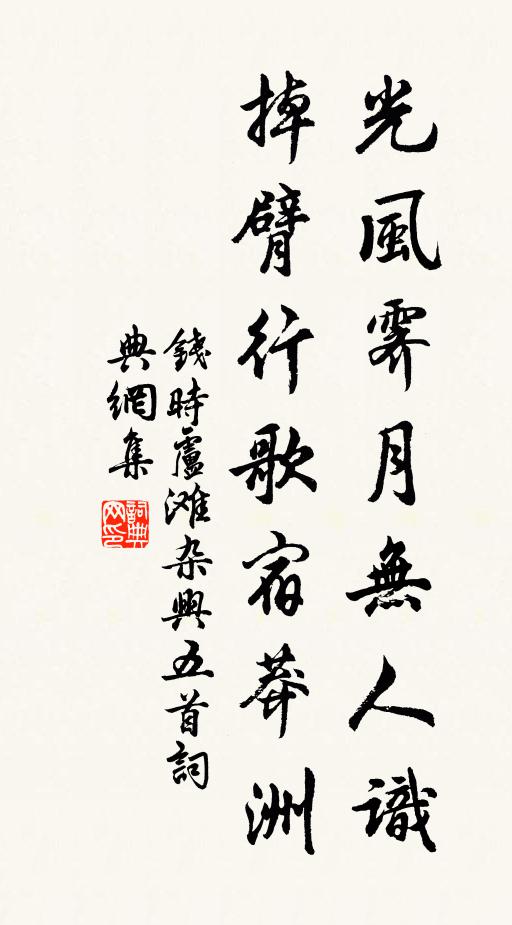 光風霽月無人識
掉臂行歌宿莽洲
錢時盧滩杂興五首詞
典網集
詞典网印